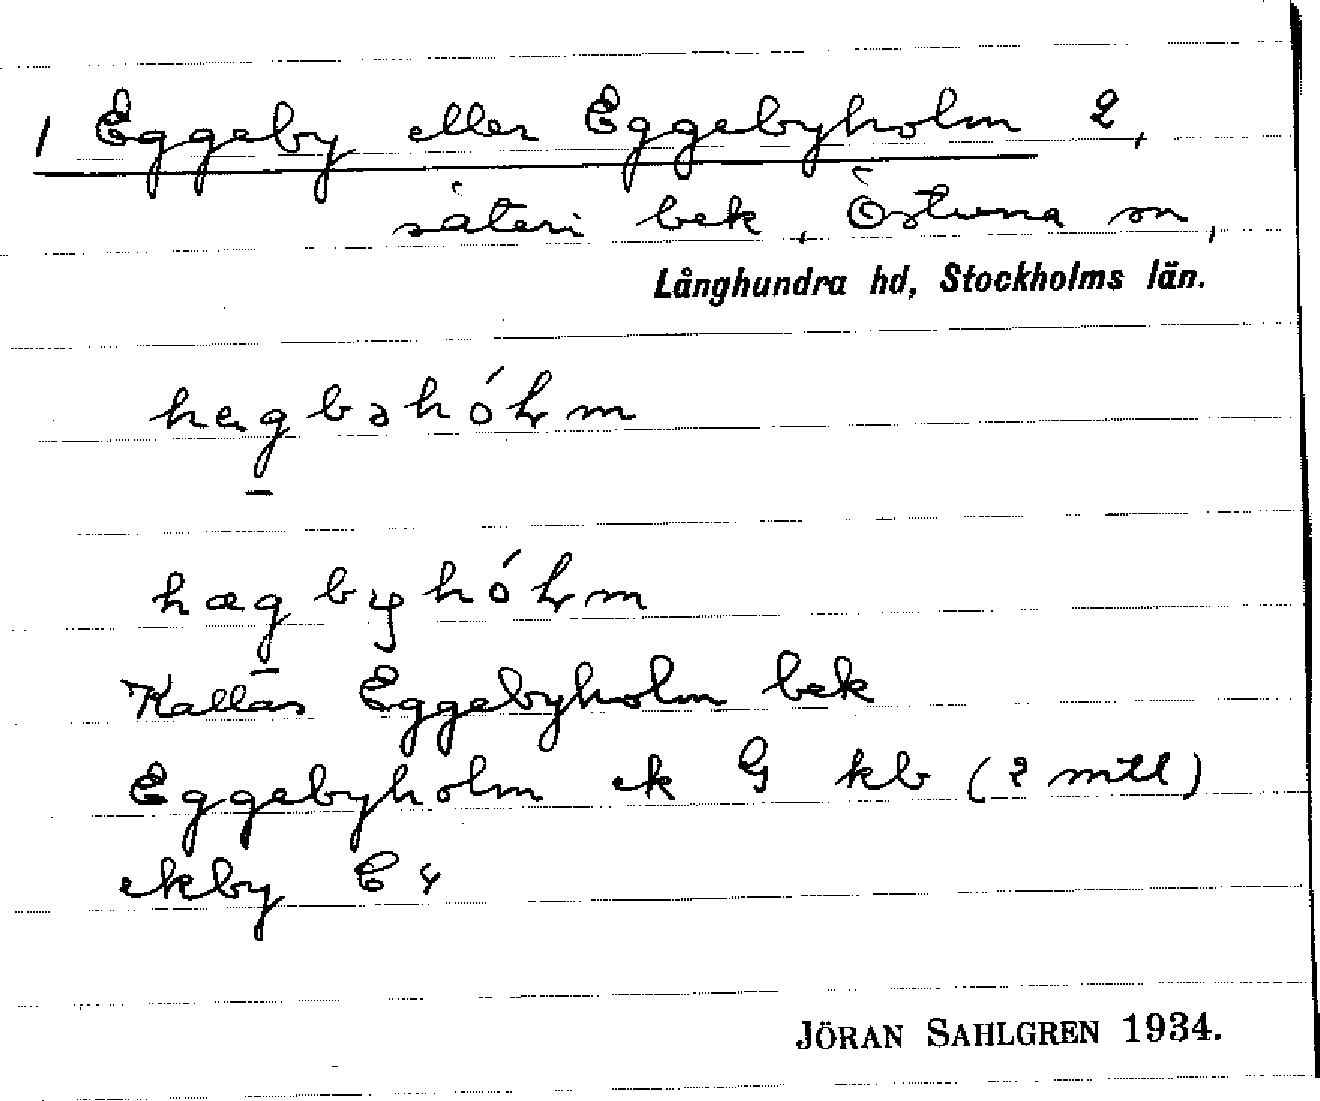 1 Eggeby eller Eggebyholm 2,
säteri bek, Östuna sn,
Långhundra hd, Stockholms län.
hegbəhólm
hægbyhólm
Kallas Eggebyholm bek
Eggebyholm ek G kb (2 mtl)
ekby
JÖRAN SAHLGREN 1934.